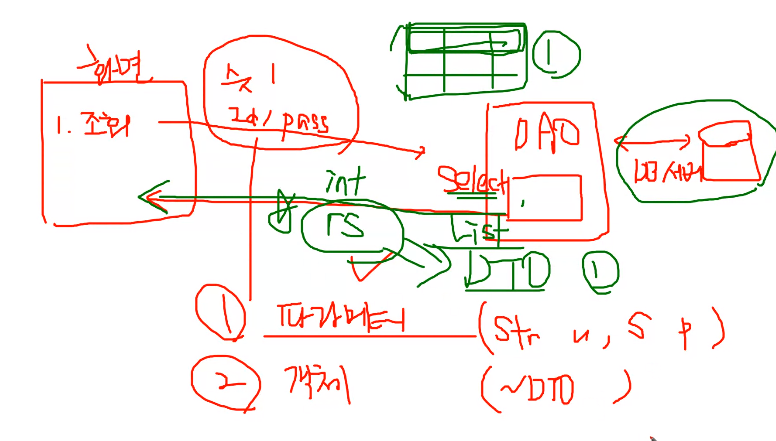 화면
1. 조회
숫 1
Id / pass
①
DAO
DB 서버
Select
int
rs
List
DTO ①
① 파라메터 (Str u, S p)
② 객체 (~DTO )